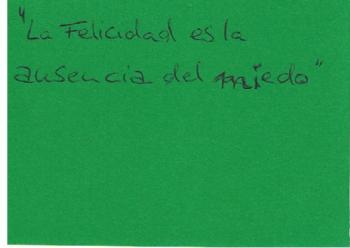 "La Felicidad es la
ausencia del miedo"